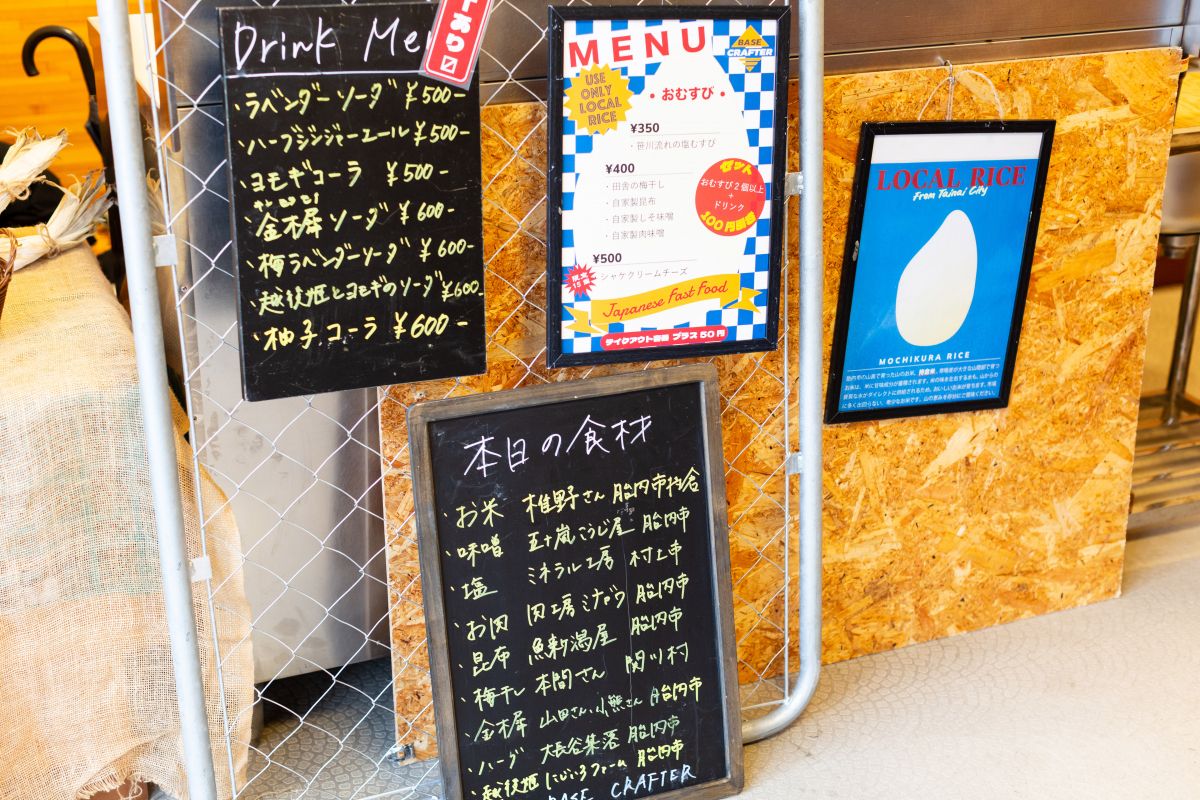 Drink Me
あり〼
・ラベンダーソーダ ¥500-
・ハーブジンジャーエール ¥500-
・ヨモギコーラ ¥500-
・金木犀ソーダ ¥600-
・梅ラベンダーソーダ ¥600-
・越後姫とヨモギのソーダ ¥600-
・柚子コーラ ¥600-
MENU
BASE
CRAFTER
USE
ONLY
LOCAL
RICE
・おむすび・
¥350
・笹川流れの塩むすび
¥400
・田舎の梅干し
・自家製昆布
・自家製しそ味噌
・自家製肉味噌
セット
おむすび2個以上
+
ドリンク
100円
¥500
シャケクリームチーズ
Japanese Fast Food
テイクアウト プラス50円
LOCAL RICE
From Tainai City
MOCHIKURA RICE
本日の食材
・お米 椎野さん 胎内市持倉
・味噌 五十嵐こうじ屋 胎内市
・塩 ミネラル工房 村上市
・お肉 肉工房ミナガワ 胎内市
・昆布 魚新潟屋 胎内市
・梅干し 本間さん 関川村
・金木犀 山田さん・小熊さん 胎内市
・ハーブ 大長谷集落 胎内市
・越後姫 にいいろファーム 胎内市
BASE CRAFTER